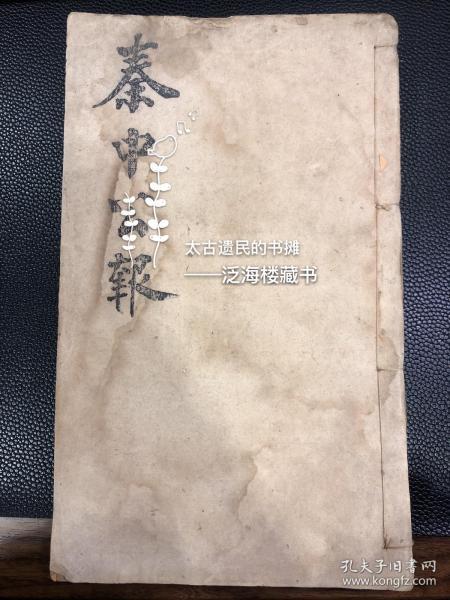 秦中官報
太古遗民的书摊
——泛海楼藏书
孔夫子旧书网
www.kongfz.com